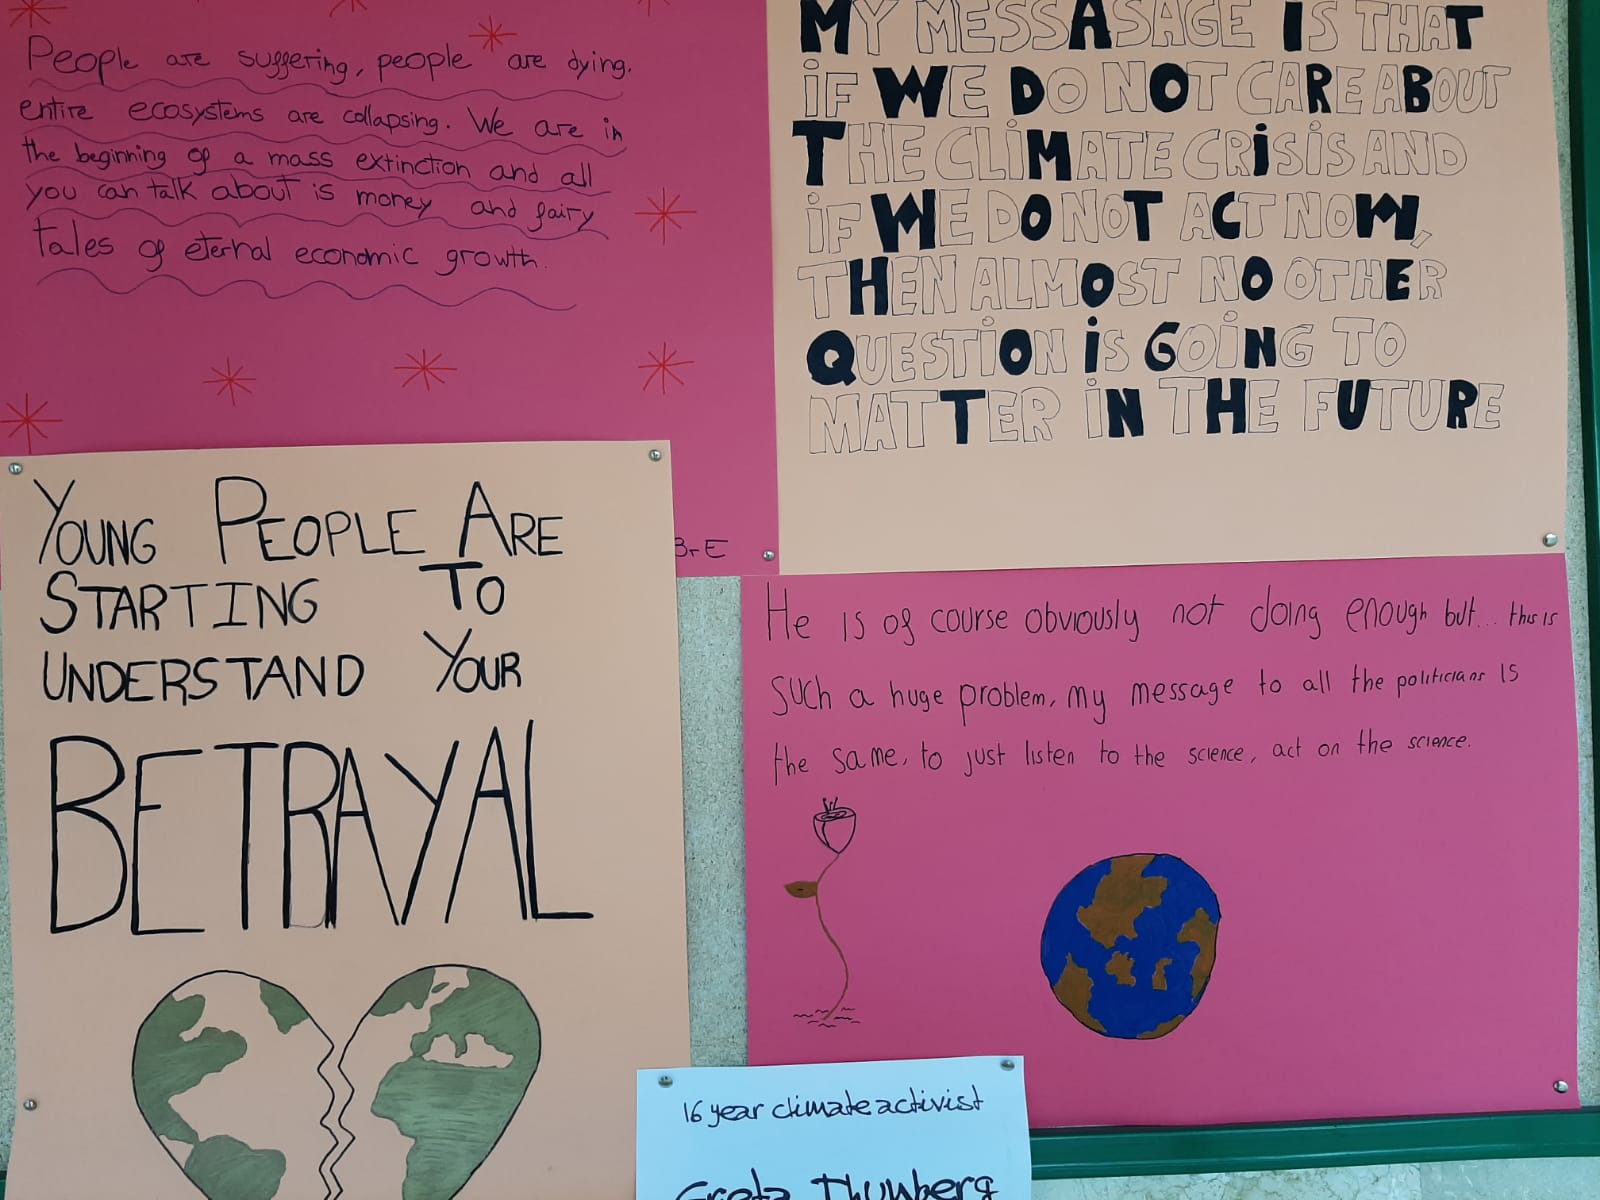 People are suggering, people are dying.
entire ecosystems are collapsing. We are in
the beginning of a mass extinction and all
you can talk about is money and fairy
tales of eternal economic growth.
3r E
MY MESSASAGE IS THAT
iF WE DO NOT CARE ABOUT
THE CLiMATE CRiSiS AND
iF WE DO NOT ACT NOW,
THEN ALMOST NO OTHER
QUESTiON iS GOiNG TO
MATTER iN THE FUTURE
YOUNG PEOPLE ARE
STARTING TO
UNDERSTAND YOUR
BETRAYAL
He is of course obviously not doing enough but... this is
such a huge problem, my message to all the politicians is
the same, to just listen to the science, act on the science.
16 year climate activist
Greta Thunberg